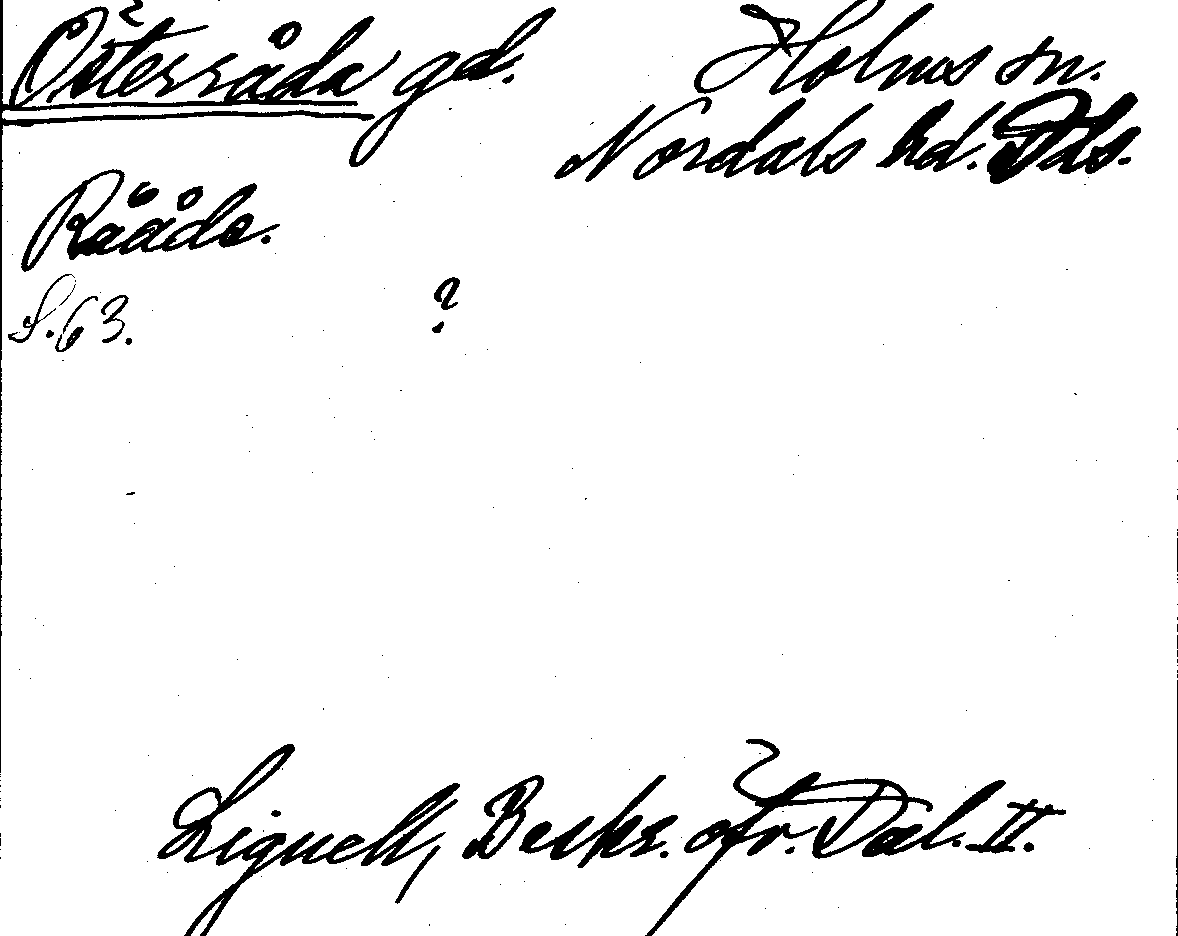 Österråda gd. Holms sn.
Nordals hd. Dls.
Rååda.
S. 63. ?
Lignell, Beskr. öfr. Dal. II.